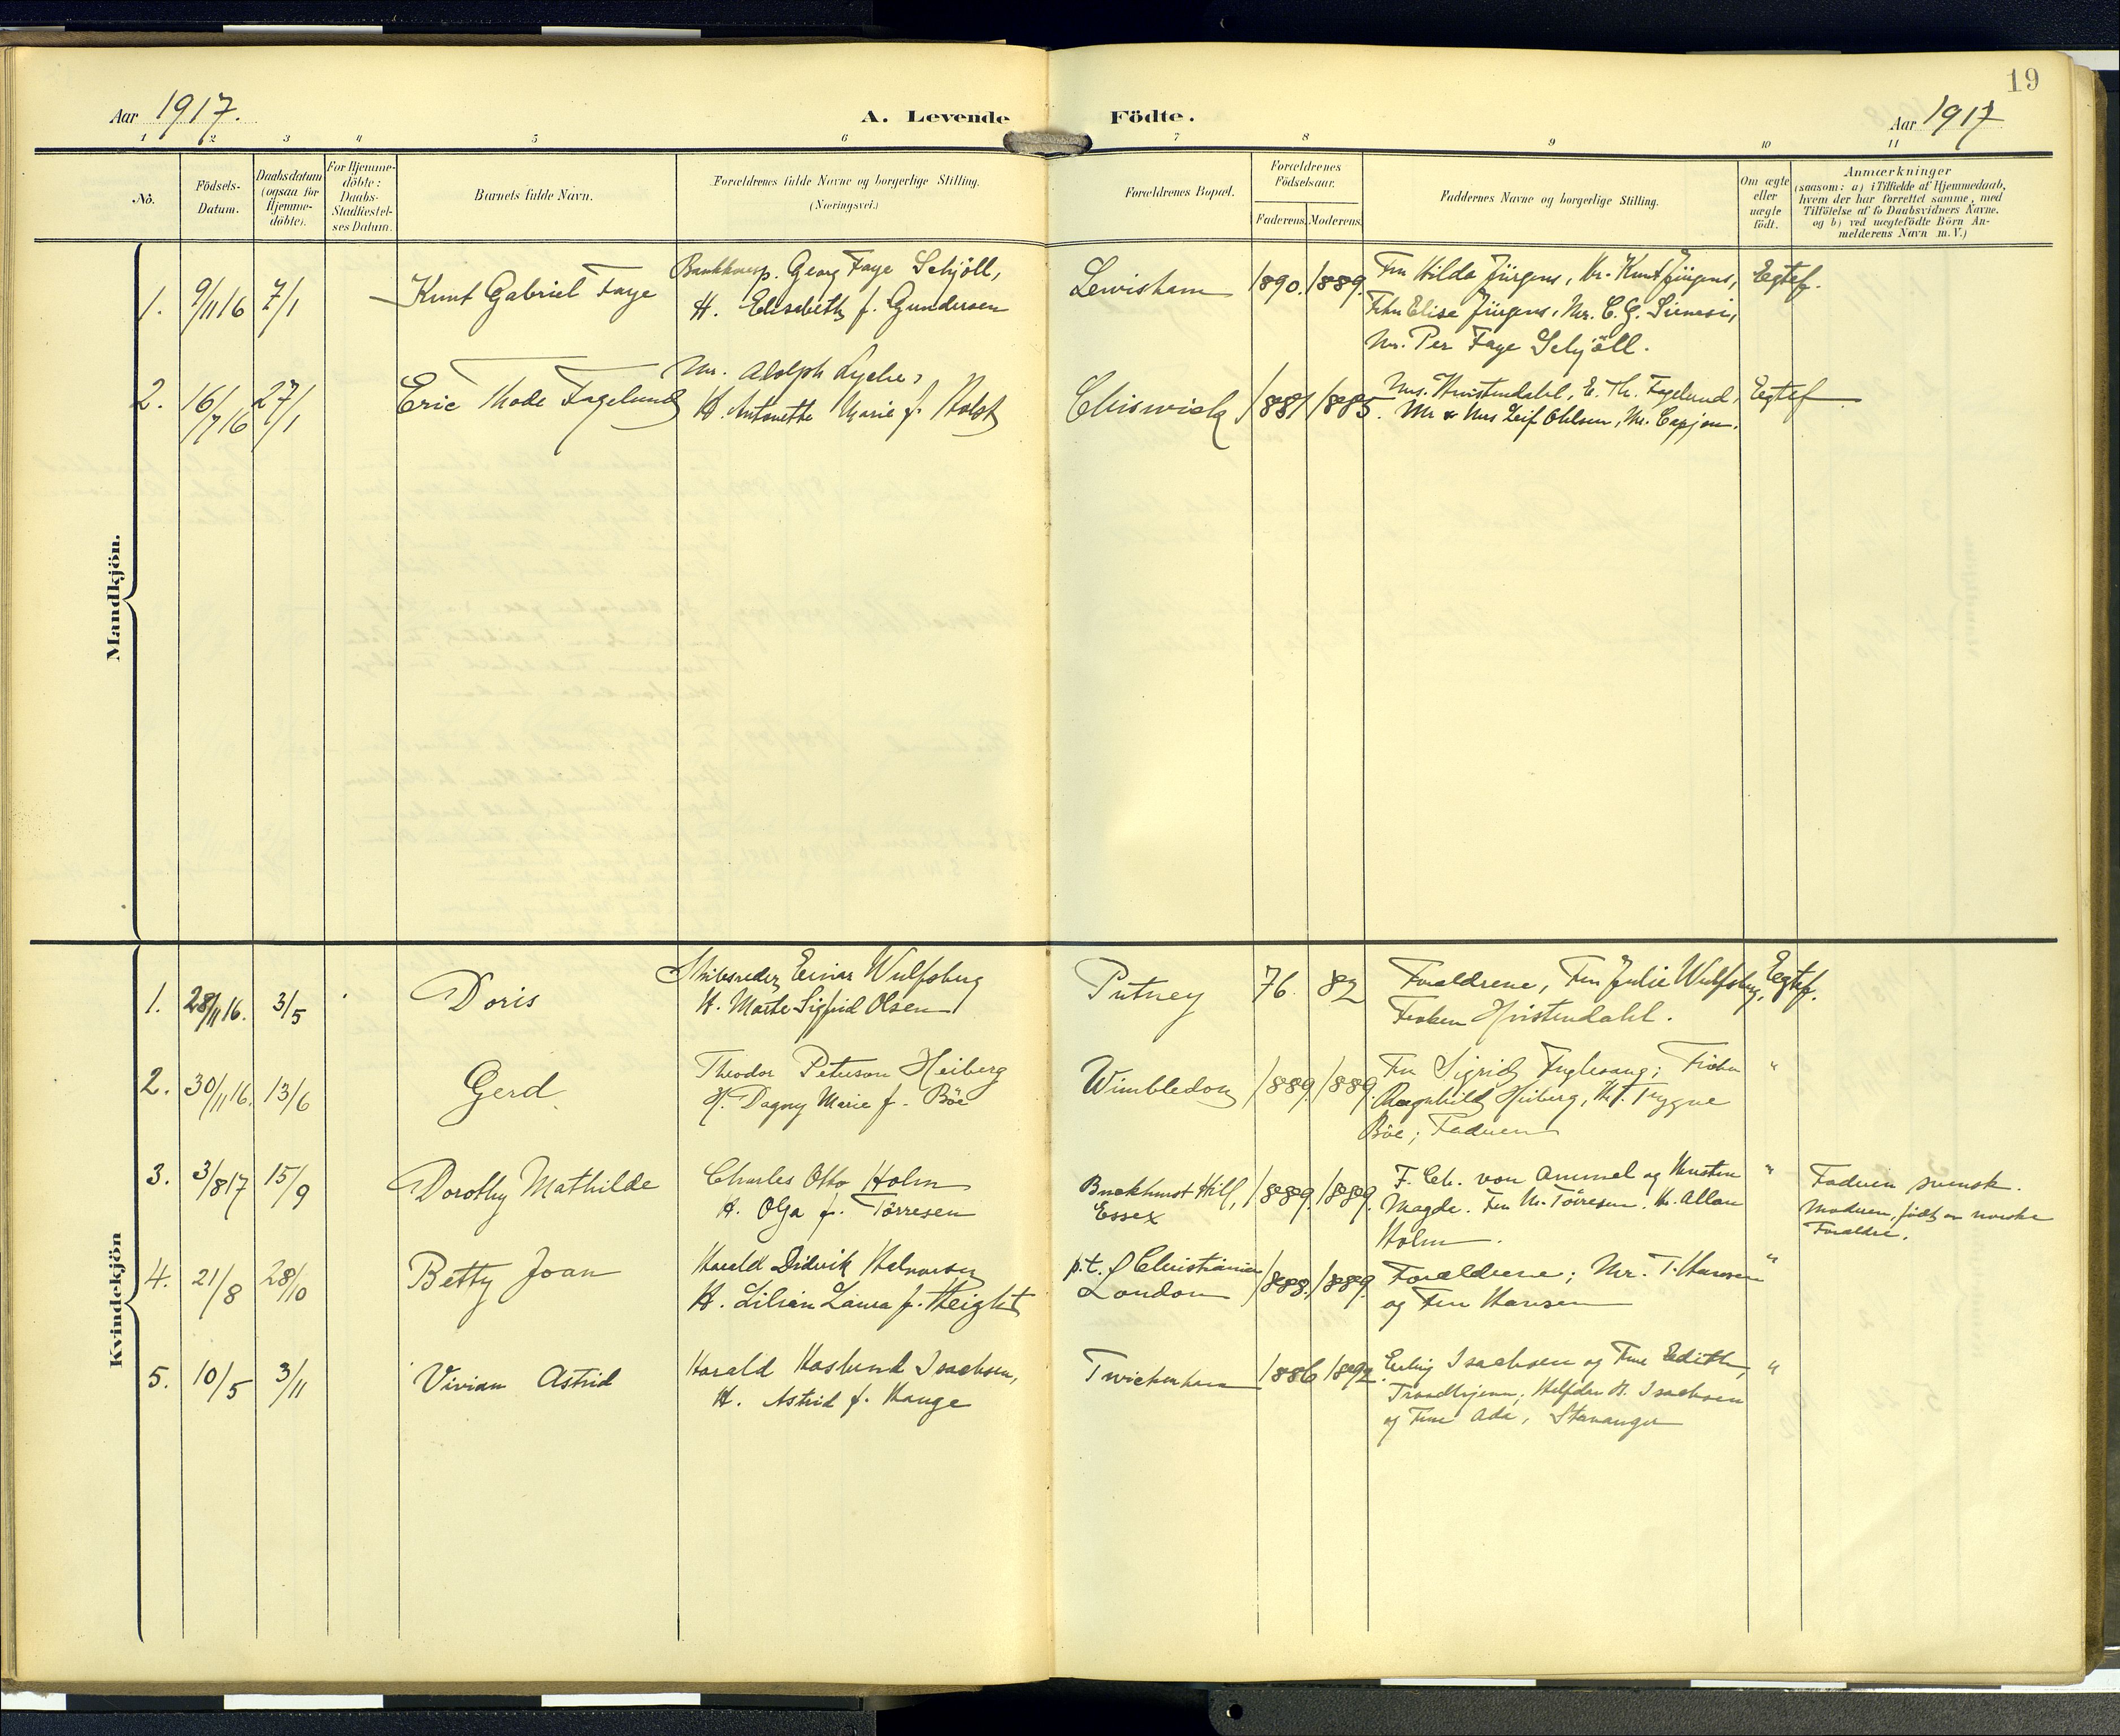 19
Aar 1917.
A. Levende Födte.
Aar 1917
1 2 3 4 5 6 7 8 9 10 11
No.
Födsels-
Datum.
Daabsdatum
(ogsaa for
Hjemme-
döbte).
For Hjemme-
döbte:
Daabs-
Stadfæstel-
ses Datum.
Barnets fulde Navn.
Forældrenes fulde Navne og borgerlige Stilling.
(Næringsvei.)
Forældrenes Bopæl.
Forældrenes
Födselsaar.
Faderens. Moderens.
Faddernes Navne og borgerlige Stilling.
Om ægte
eller
uægte
födt.
Anmærkninger
(saasom: a) i Tilfælde af Hjemmedaab,
hvem der har forrettet samme, med
Tilföielse af to Daabsvidners Navne.
og b) ved uægtefödte Börn An-
melderens Navn m. V.)
Mandkjön.
1. 9/11 16 7/1 Knut Gabriel Faye
Georg Faye Schjöll,
H. Elisabeth f. Gundersen
Lewisham 1890. 1889.
Fru Hilda Jürgens, Hr. Knut Jürgens,
Frkn Elise Jürgens, Mr. C. G.
Mr. Per Faye Schjöll.
Egtef.
2. 16/7 16 27/1 Eric Thode Fagelund
Mr. Adolph Lyche,
H. Antonette Marie f. Holst
Chiswick 1881 1885.
Mrs. Hvistendahl, E. Th. Fagelund,
Mr & Mrs Leif Ohlsen, Mr. Capjon.
Egtef
Kvindekjön
1. 28/11 16. 3/5 Doris
Skibsreder Einar Wulfsberg
H. Marte Sigfrid Olsen
Putney 76. 82
Forældrene, Fru Julie Wulfsberg,
Frøken Hvistendahl.
Egtef.
2. 30/11 16. 13/6 Gerd
Theodor Peterson Heiberg
H. Dagny Marie f. Böe
Wimbledon 1889. 1889.
Fru Sigrid Fuglesang; Frøken
Ragnhild Heiberg, Hr. Trygve
Böe; Faderen
"
3. 3/8 17 15/9 Dorothy Mathilde
Charles Otto Holm
H. Olga f. Törresen
Buckhurst Hill,
Essex
1889. 1889.
F. Ch. von Ammel og Hustru
Magda. Fru M. Törresen. Hr. Allan
Holm.
"
Faderen svensk.
Moderen, født av norske
Forældre.
4. 21/8 28/10 Betty Joan
Harald Didrik Halvorsen
H. Lilian Laura f. Height
p.t. Christiania
London
1888. 1889.
Forældrene; Mr. T. Hansen
og Fru Hansen
"
5. 10/5 3/11 Vivian Astrid
Harald Haslund Isachsen,
H. Astrid f. Hauge
Twickenham 1886 1892.
Erling Isachsen og Frue Edith,
Trondhjem; Halfdan H. Isachsen
og Frue Ada, Stavanger
"